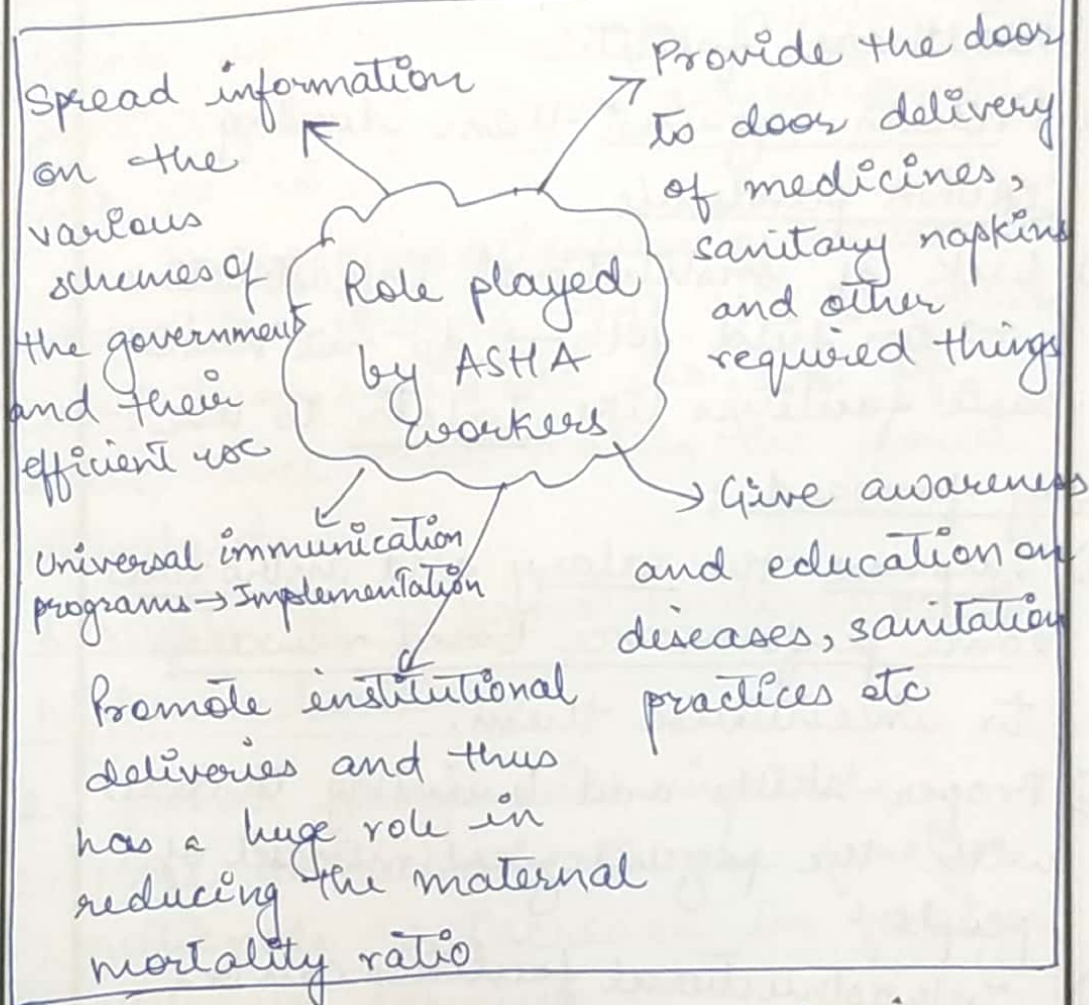 Role played
by ASHA
workers
Spread information
on the
various
schemes of
the government
and their
efficient use
Provide the door
to door delivery
of medicines,
sanitary napkins
and other
required things
Give awareness
and education on
diseases, sanitation
practices etc
Universal immunication
programs → Implementation
Promote institutional
deliveries and thus
has a huge role in
reducing the maternal
mortality ratio